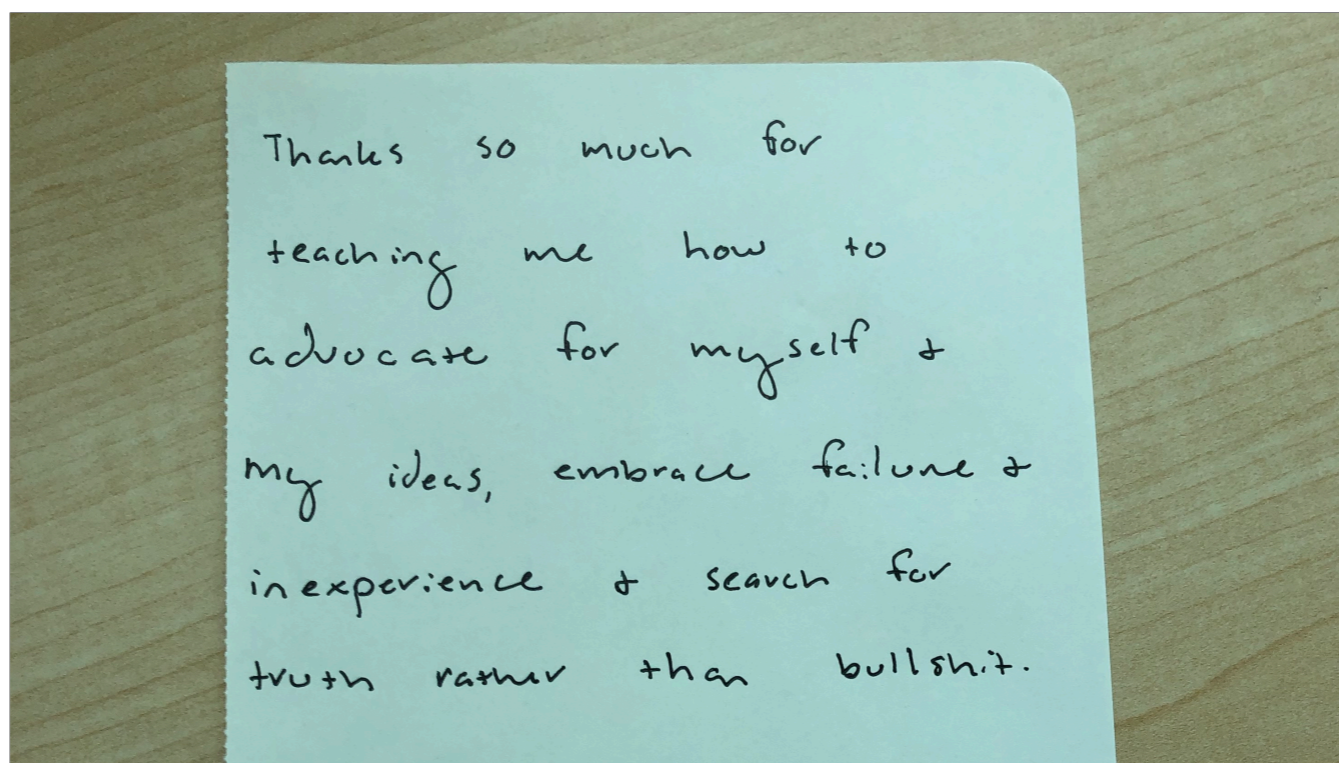 Thanks so much for
teaching me how to
advocate for myself &
my ideas, embrace failure &
inexperience & search for
truth rather than bullshit.